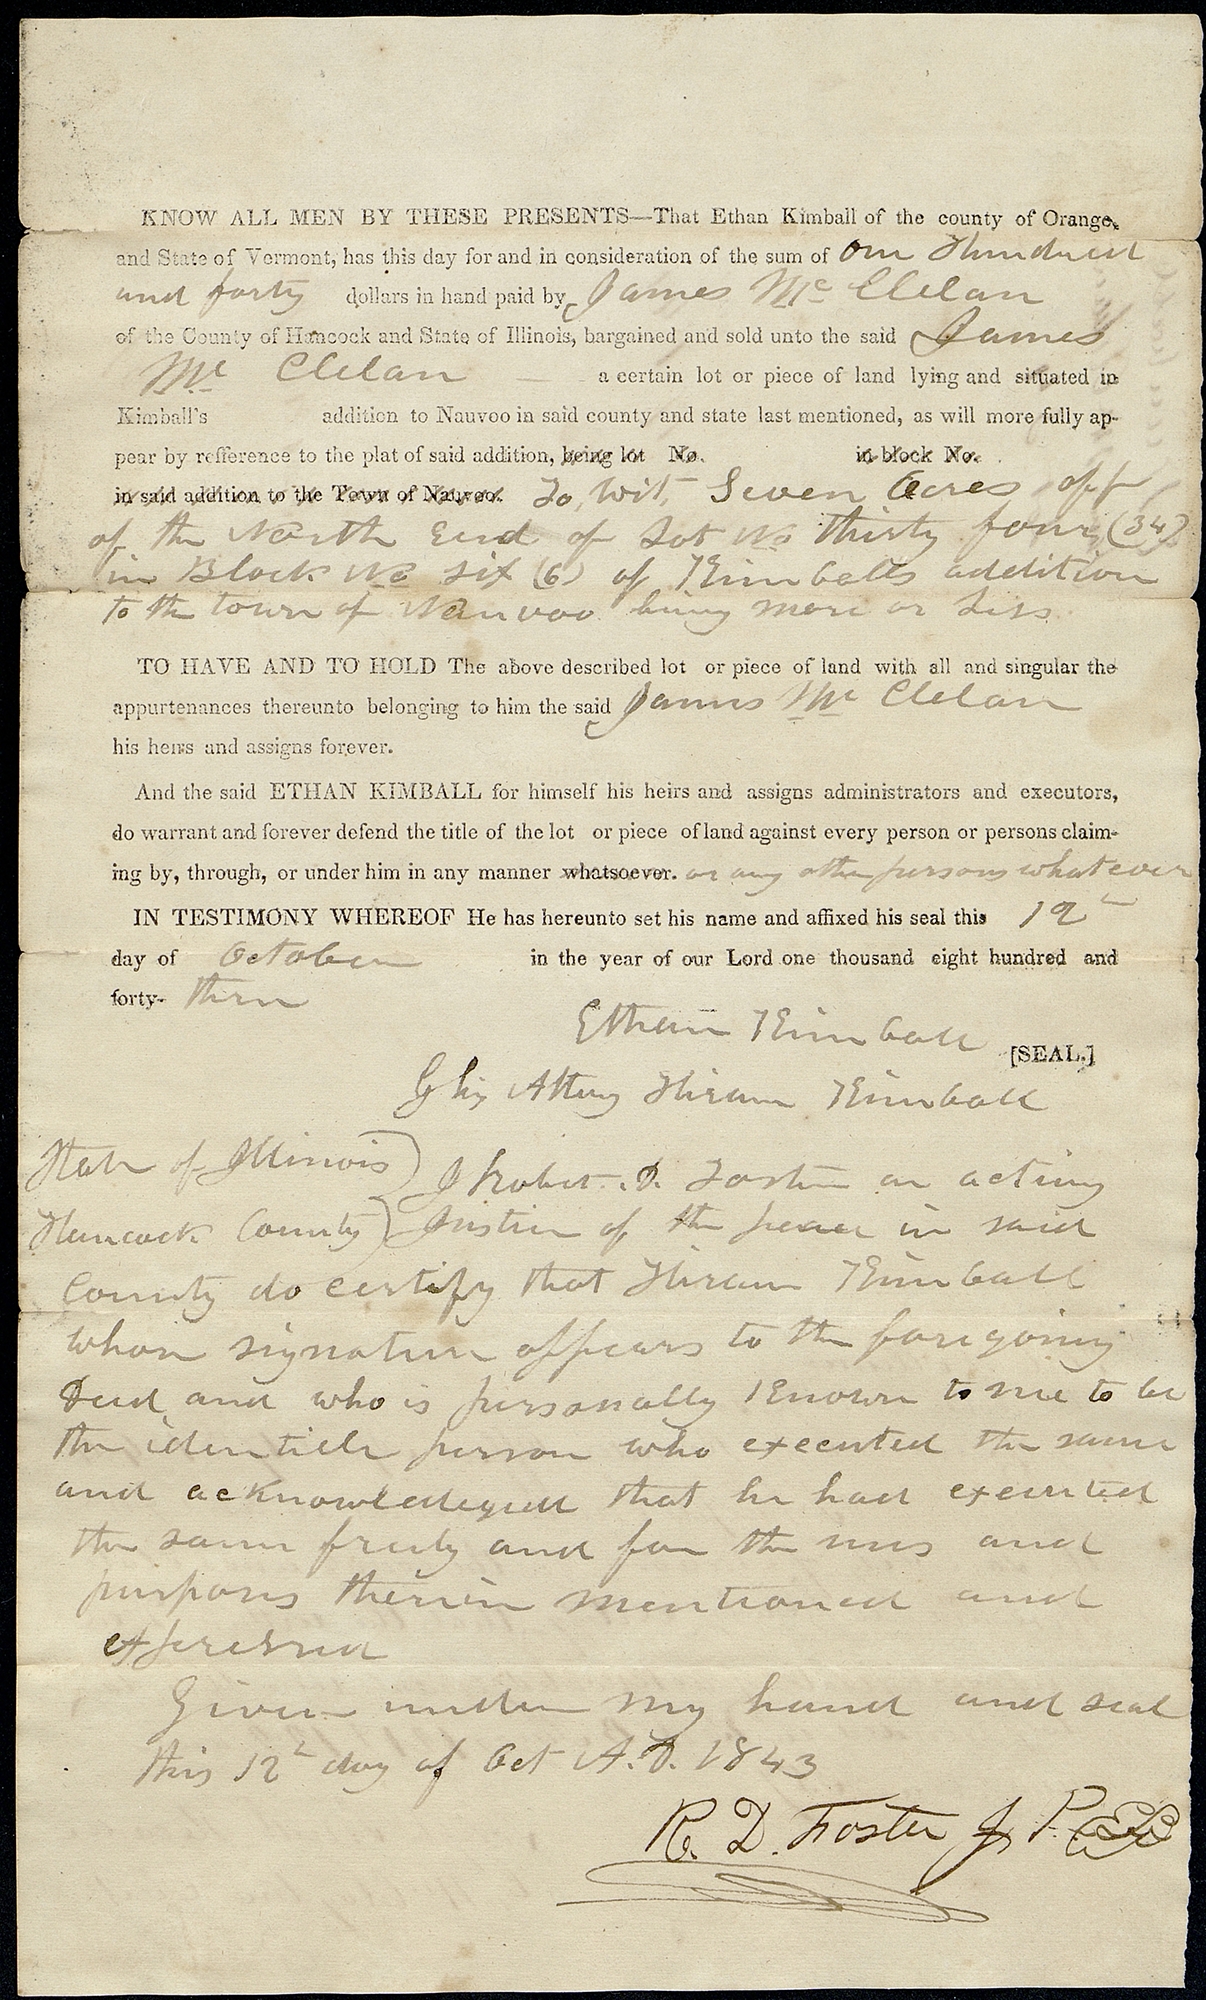 KNOW ALL MEN BY THESE PRESENTS—That Ethan Kimball of the county of Orange,
and State of Vermont, has this day for and in consideration of the sum of One Hundred
and forty dollars in hand paid by James Mc Clelan
of the County of Hancock and State of Illinois, bargained and sold unto the said James
Mc Clelan — a certain lot or piece of land lying and situated in
Kimball's addition to Nauvoo in said county and state last mentioned, as will more fully ap-
pear by refference to the plat of said addition, being lot No. in block No.
in said addition to the Town of Nauvoo. To, wit, Seven Acres off
of the North End of Lot No thirty four (34)
in Block No six (6) of Kimballs addition
to the town of Nauvoo being more or less
TO HAVE AND TO HOLD The above described lot or piece of land with all and singular the
appurtenances thereunto belonging to him the said James Mc Clelan
his heirs and assigns forever.
And the said ETHAN KIMBALL for himself his heirs and assigns administrators and executors,
do warrant and forever defend the title of the lot or piece of land against every person or persons claim-
ing by, through, or under him in any manner whatsoever. or any other persons whatever
IN TESTIMONY WHEREOF He has hereunto set his name and affixed his seal this 12th
day of October in the year of our Lord one thousand eight hundred and
forty- three
Ethan Kimball [SEAL.]
By his Attny Hiram Kimball
State of Illinois) I Robert. D. Foster an acting
Hancock County) Justice of the peace in said
County do certify that Hiram Kimball
whose signature appears to the foregoing
Deed and who is personally Known to me to be
the identicle person who executed the same
and acknowledeged that he had executed
the same freely and for the uses and
purposes therein mentioned and
expressed
Given under my hand and seal
this 12th day of Oct A.D. 1843
R. D. Foster J. P.